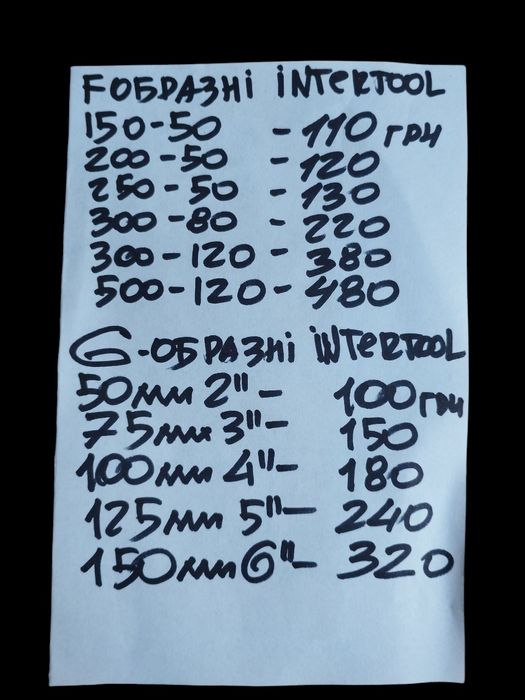 FОБРАЗНІ INTERTOOL
150-50 - 110 грн
200-50 - 120
250-50 - 130
300-80 - 220
300-120 - 380
500-120 - 480
G-ОБРАЗНІ INTERTOOL
50мм 2" - 100 грн
75мм 3" - 150
100мм 4" - 180
125мм 5" - 240
150мм 6" - 320